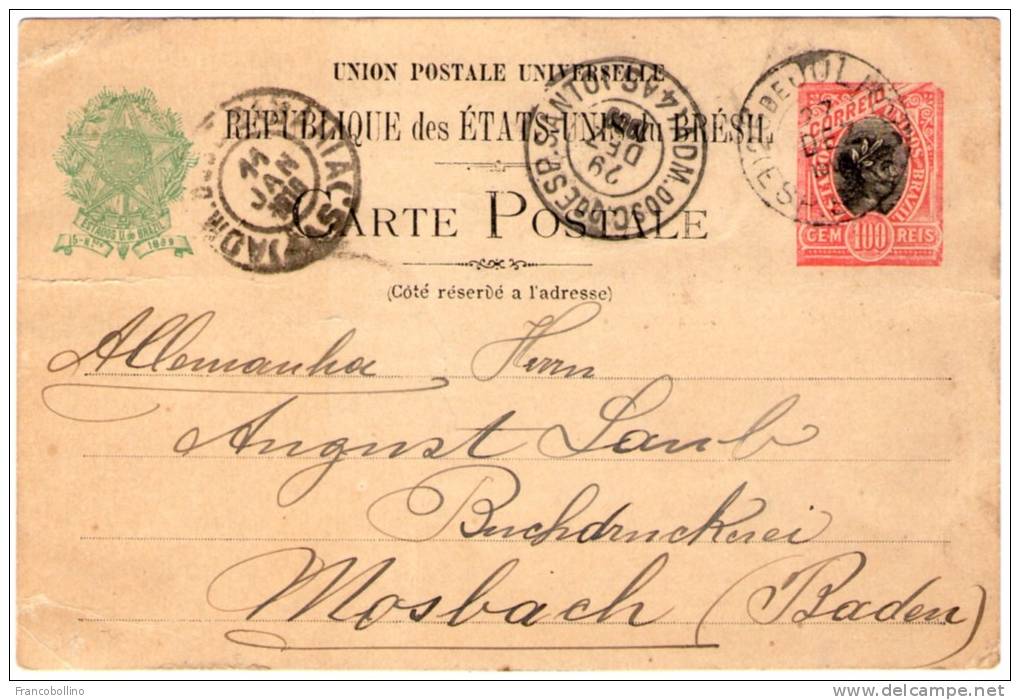 UNION POSTALE UNIVERSELLE
RÉPUBLIQUE des ÉTATS-UNIS du BRÉSIL
CARTE POSTALE
(Côté réservé a l'adresse)
ESTADOS U. do BRAZIL
1889
11
JAN
29
DEZ
27
DEZ
CORREIO
CEM 100 REIS
Allemanha Herrn
August Laub
Buchdruckerei
Mosbach (Baden)
Francobollino
delcampe.net